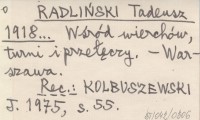 RADLIŃSKI Tadeusz
1918... Wśród wierchów,
turni i przełęczy. – War-
szawa.
Rec.: KOLBUSZEWSKI
J. 1975, s. 55.